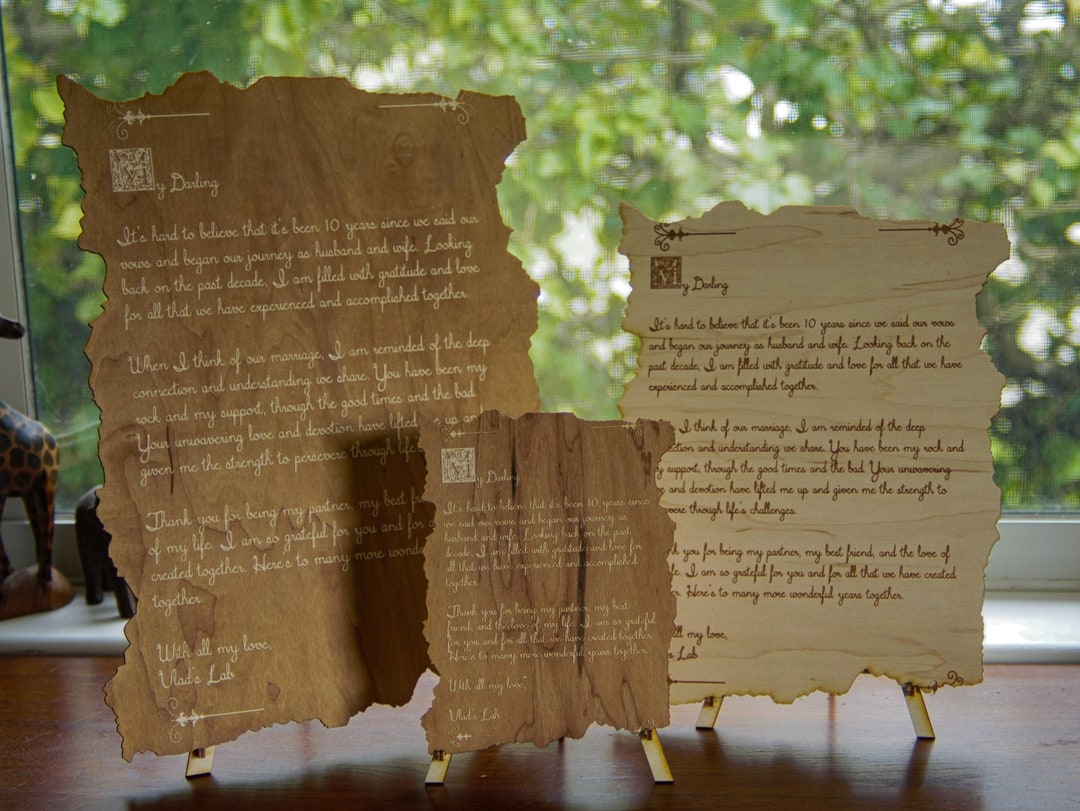 My Darling
It's hard to believe that it's been 10 years since we said our
vows and began our journey as husband and wife. Looking
back on the past decade, I am filled with gratitude and love
for all that we have experienced and accomplished together.
When I think of our marriage, I am reminded of the deep
connection and understanding we share. You have been my
rock and my support, through the good times and the bad.
Your unwavering love and devotion have lifted up an
given me the strength to persevere through life's
Thank you for being my partner, my best fr
of my life. I am so grateful for you and for a
created together. Here's to many more wonde
together.
With all my love,
Vlad's Lab
My Darling
It's hard to believe that it's been 10 years since
we said our vows and began our journey as
husband and wife. Looking back on the past
decade, I am filled with gratitude and love for
all that we have experienced and accomplished
together.
Thank you for being my partner, my best
friend, and the love of my life. I am so grateful
for you and for all that we have created together.
Here's to many more wonderful years together.
With all my love,
Vlad's Lab
My Darling
It's hard to believe that it's been 10 years since we said our vows
and began our journey as husband and wife. Looking back on the
past decade, I am filled with gratitude and love for all that we have
experienced and accomplished together.
I think of our marriage, I am reminded of the deep
ction and understanding we share. You have been my rock and
y support, through the good times and the bad. Your unwavering
e and devotion have lifted me up and given me the strength to
evere through life's challenges.
k you for being my partner, my best friend, and the love of
fe. I am so grateful for you and for all that we have created
r. Here's to many more wonderful years together.
all my love,
s Lab